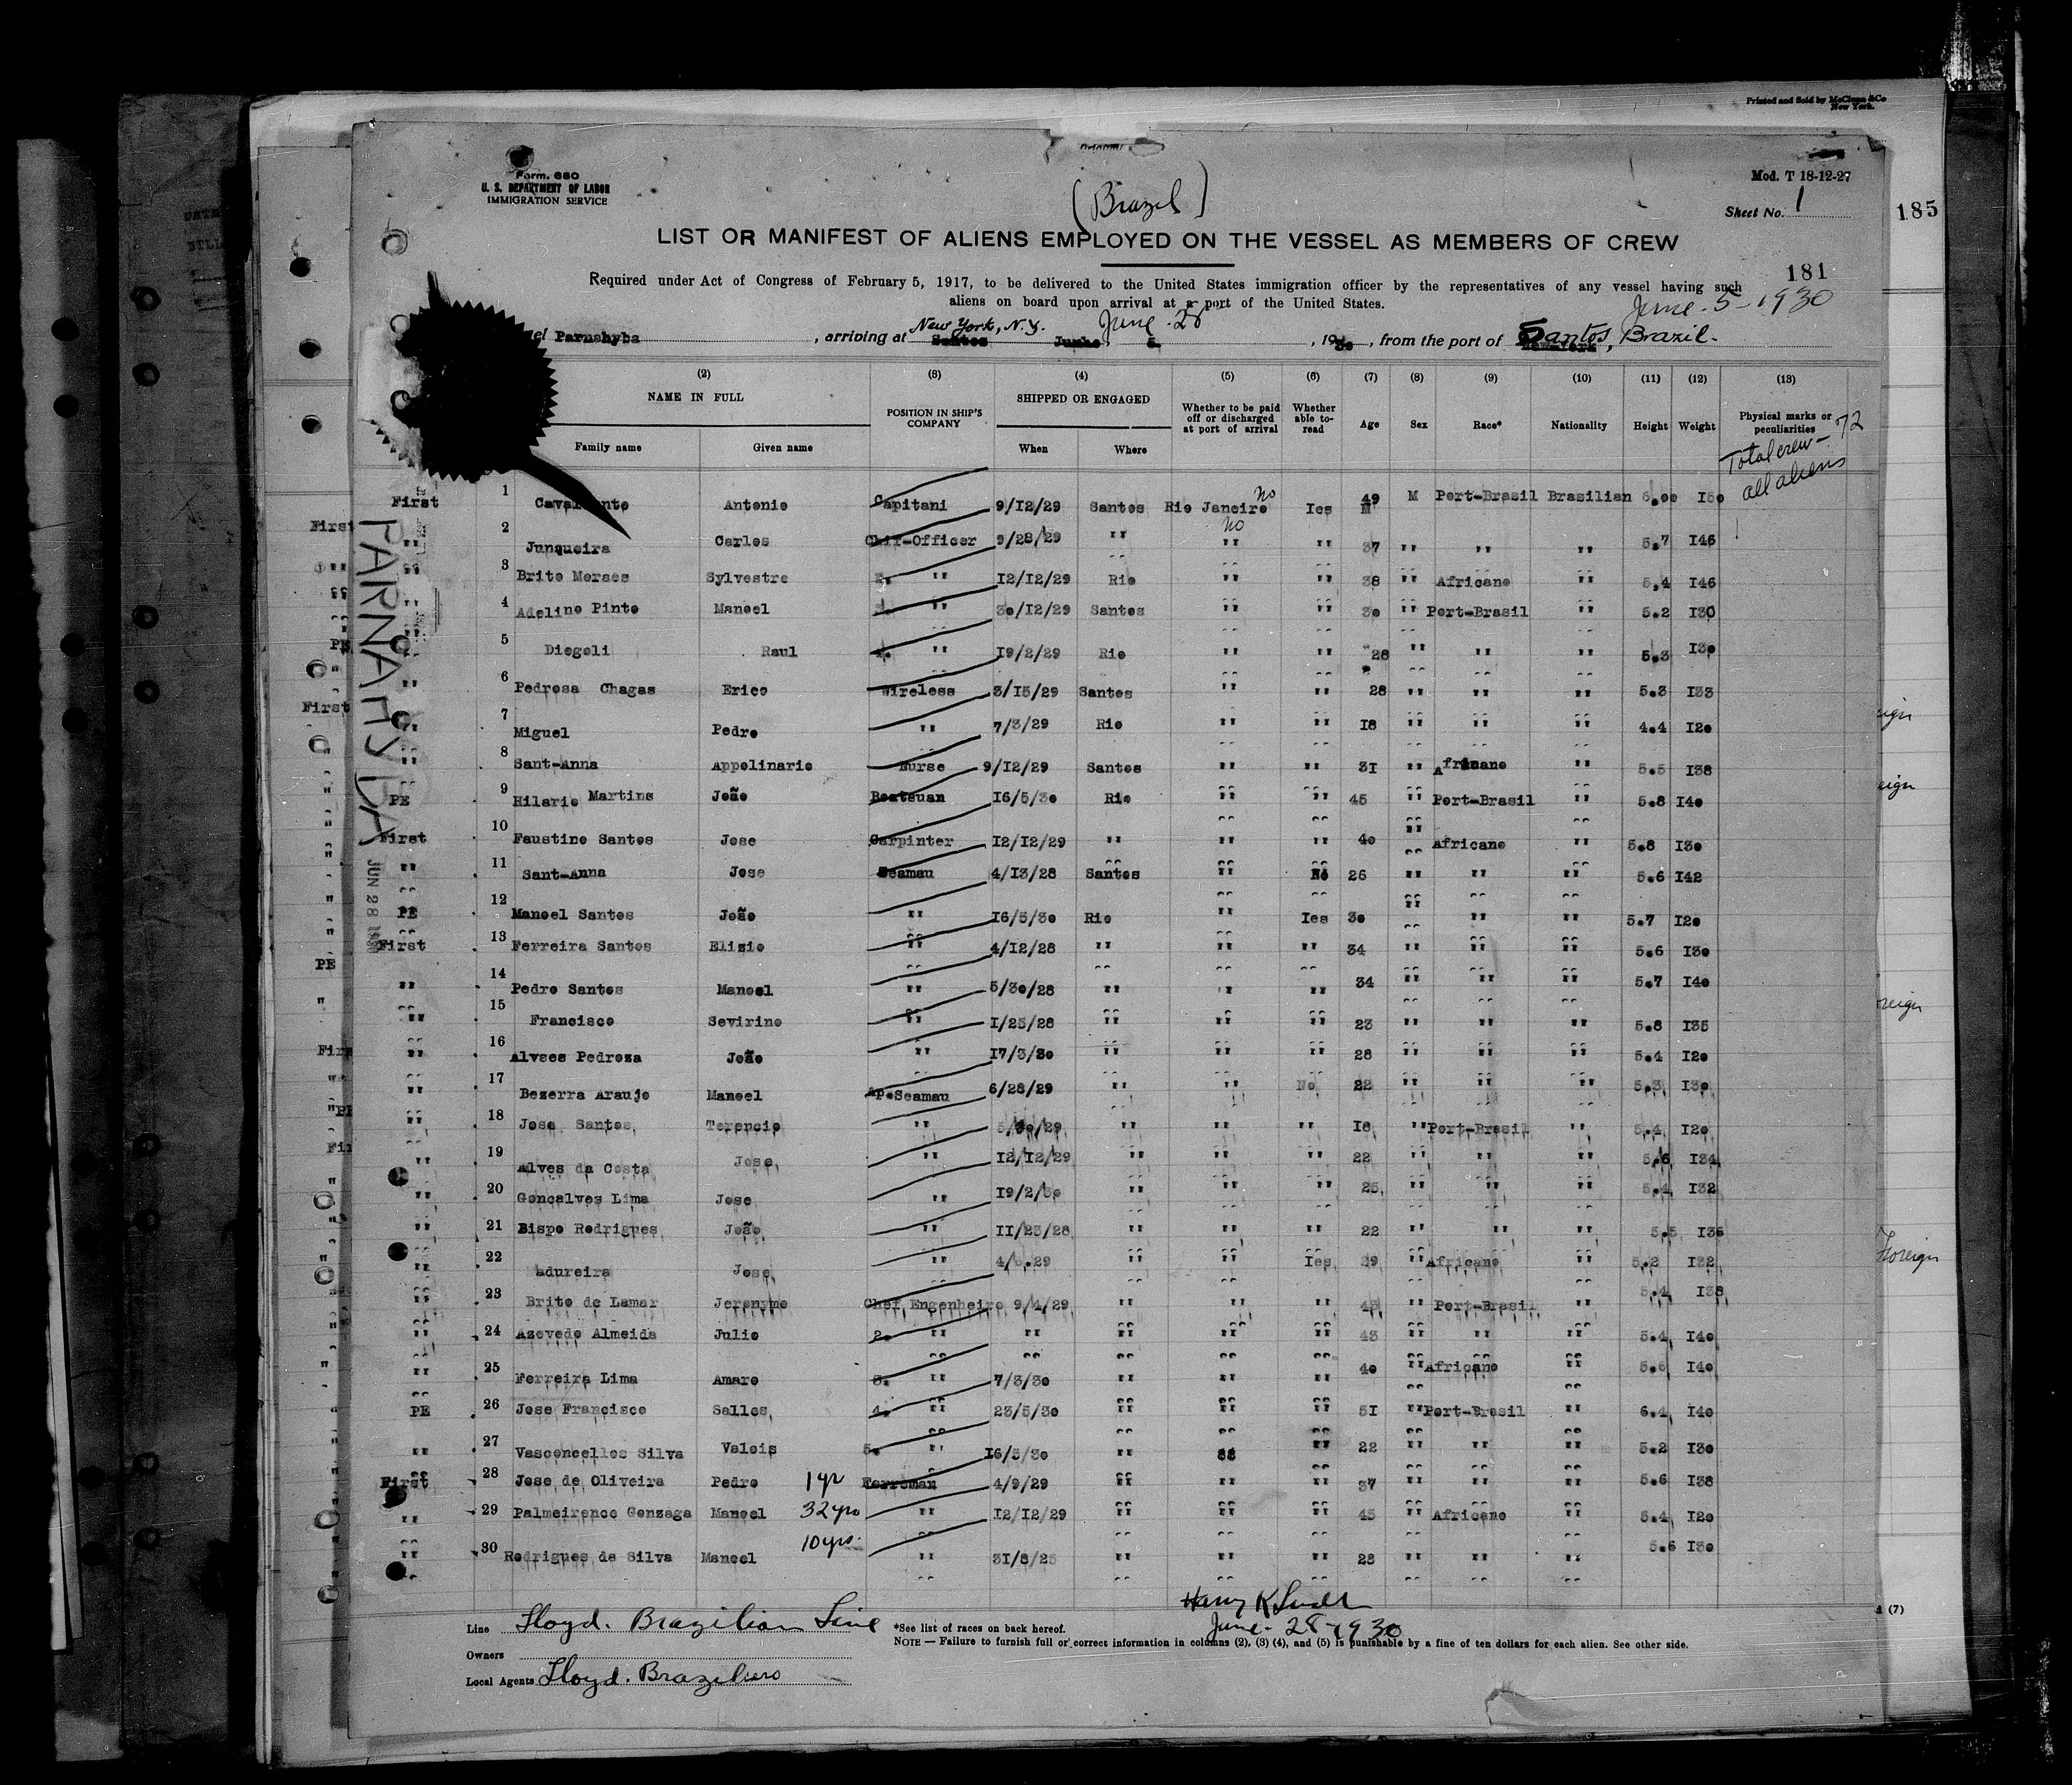 Printed and Sold by McClunn & Co
New York.
Form. 680
U. S. DEPARTMENT OF LABOR
IMMIGRATION SERVICE
Mod. T 18-12-27
(Brazil)
Sheet No. 1
185
LIST OR MANIFEST OF ALIENS EMPLOYED ON THE VESSEL AS MEMBERS OF CREW
181
Required under Act of Congress of February 5, 1917, to be delivered to the United States immigration officer by the representatives of any vessel having such
aliens on board upon arrival at a port of the United States.
June-5-1930
el Parnahyba, arriving at New York, N.Y. June. 28, 1930, from the port of Santos, Brazil.
(2) (3) (4) (5) (6) (7) (8) (9) (10) (11) (12) (13)
NAME IN FULL POSITION IN SHIP'S COMPANY SHIPPED OR ENGAGED Whether to be paid off or discharged at port of arrival Whether able to- read Age Sex Race* Nationality Height Weight Physical marks or peculiarities
Family name Given name When Where
Total crew- 72
all aliens
PARNAHYBA
JUN 28
First 1 Antonio Capitani 9/12/29 Santos Rio Janeiro no Ies 49 M Port-Brasil Brasilian
" 2 Junqueira Carlos Chif-Officer 9/28/29 " " no " 37 " " " 5,7 146
" 3 Brito Moraes Sylvestre " 12/12/29 Rio " " 38 " Africano " 5,4 146
" 4 Adelino Pinto Manoel " 30/12/29 Santos " " 30 " Port-Brasil " 5.2 130
5 Diogoli Raul " 19/2/29 Rio " " 28 " " " 5.3 130
" 6 Pedrosa Chagas Erico Wireless 3/15/29 Santos " " 28 " " " 5.3 133
" 7 Miguel Pedro " 7/3/29 Rio " " 18 " " " 4.4 120
" 8 Sant-Anna Appolinario Nurse 9/12/29 Santos " " 31 " Africano " 5.5 138
PE 9 Hilario Martins João Boatsuan 16/5/30 Rio " " 45 " Port-Brasil " 5.8 140
First 10 Faustino Santos Jose Carpinter 12/12/29 " " " 40 " Africano " 5.8 130
" 11 Sant-Anna Jose Seamau 4/13/28 Santos " No 26 " " " 5.6 142
PE 12 Manoel Santos João " 16/5/30 Rio " Ies 30 " " " 5.7 120
First 13 Ferreira Santos Elizio " 4/12/28 " " " 34 " " " 5.6 130
" 14 Pedro Santos Manoel " 5/30/28 " " " 34 " " " 5.7 140
" 15 Francisco Sevirino " 1/25/28 " " " 23 " " " 5.8 135
" 16 Alvses Pedroza João " 17/3/30 " " " 28 " " " 5.4 120
" 17 Bezerra Araujo Manoel Ap.Seamau 6/28/29 " " No 22 " " " 5.3 130
" 18 Jose Santos Terencio " " " " 18 " Port-Brasil " 5.4 120
" 19 Alves da Costa Jose " 12/12/29 " " " 22 " " " 5.6 134
" 20 Gonçalves Lima Jose " 19/2/30 " " " 25 " " " 5.4 132
" 21 Bispo Rodrigues João " 11/23/28 " " " 22 " " " 5.5 136
" 22 Madureira Jose " " " Ies 29 " Africano " 5.2 132
" 23 Brito de Lamar Jeronymo Chef Engenheiro 9/4/29 " " " 43 " Port-Brasil " 5.4 138
" 24 Azevedo Almeida Julio 2. " " " " " 43 " " " 5.4 140
" 25 Ferreira Lima Amaro 3. " 7/3/30 " " " 40 " Africano " 5.6 140
PE 26 Jose Francisco Salles 4. " 23/5/30 " " " 51 " Port-Brasil " 6.4 140
" 27 Vasconcellos Silva Valois 5. " 16/5/30 " " " 22 " " " 5.2 130
First 28 Jose de Oliveira Pedro 1 yr Ferreman 4/9/29 " " " 37 " " " 5.6 138
" 29 Palmeirence Gonzaga Manoel 32 yrs " 12/12/29 " " " 45 " Africano " 5.4 120
" 30 Rodrigues da Silva Manoel 10 yrs. " " " " 28 " " " 5.6 130
Foreign
Line Lloyd. Brazilian Line
*See list of races on back hereof.
June-28-1930
NOTE — Failure to furnish full or correct information in columns (2), (3) (4), and (5) is punishable by a fine of ten dollars for each alien. See other side.
Owners
Local Agents Lloyd. Braziliero
(7)